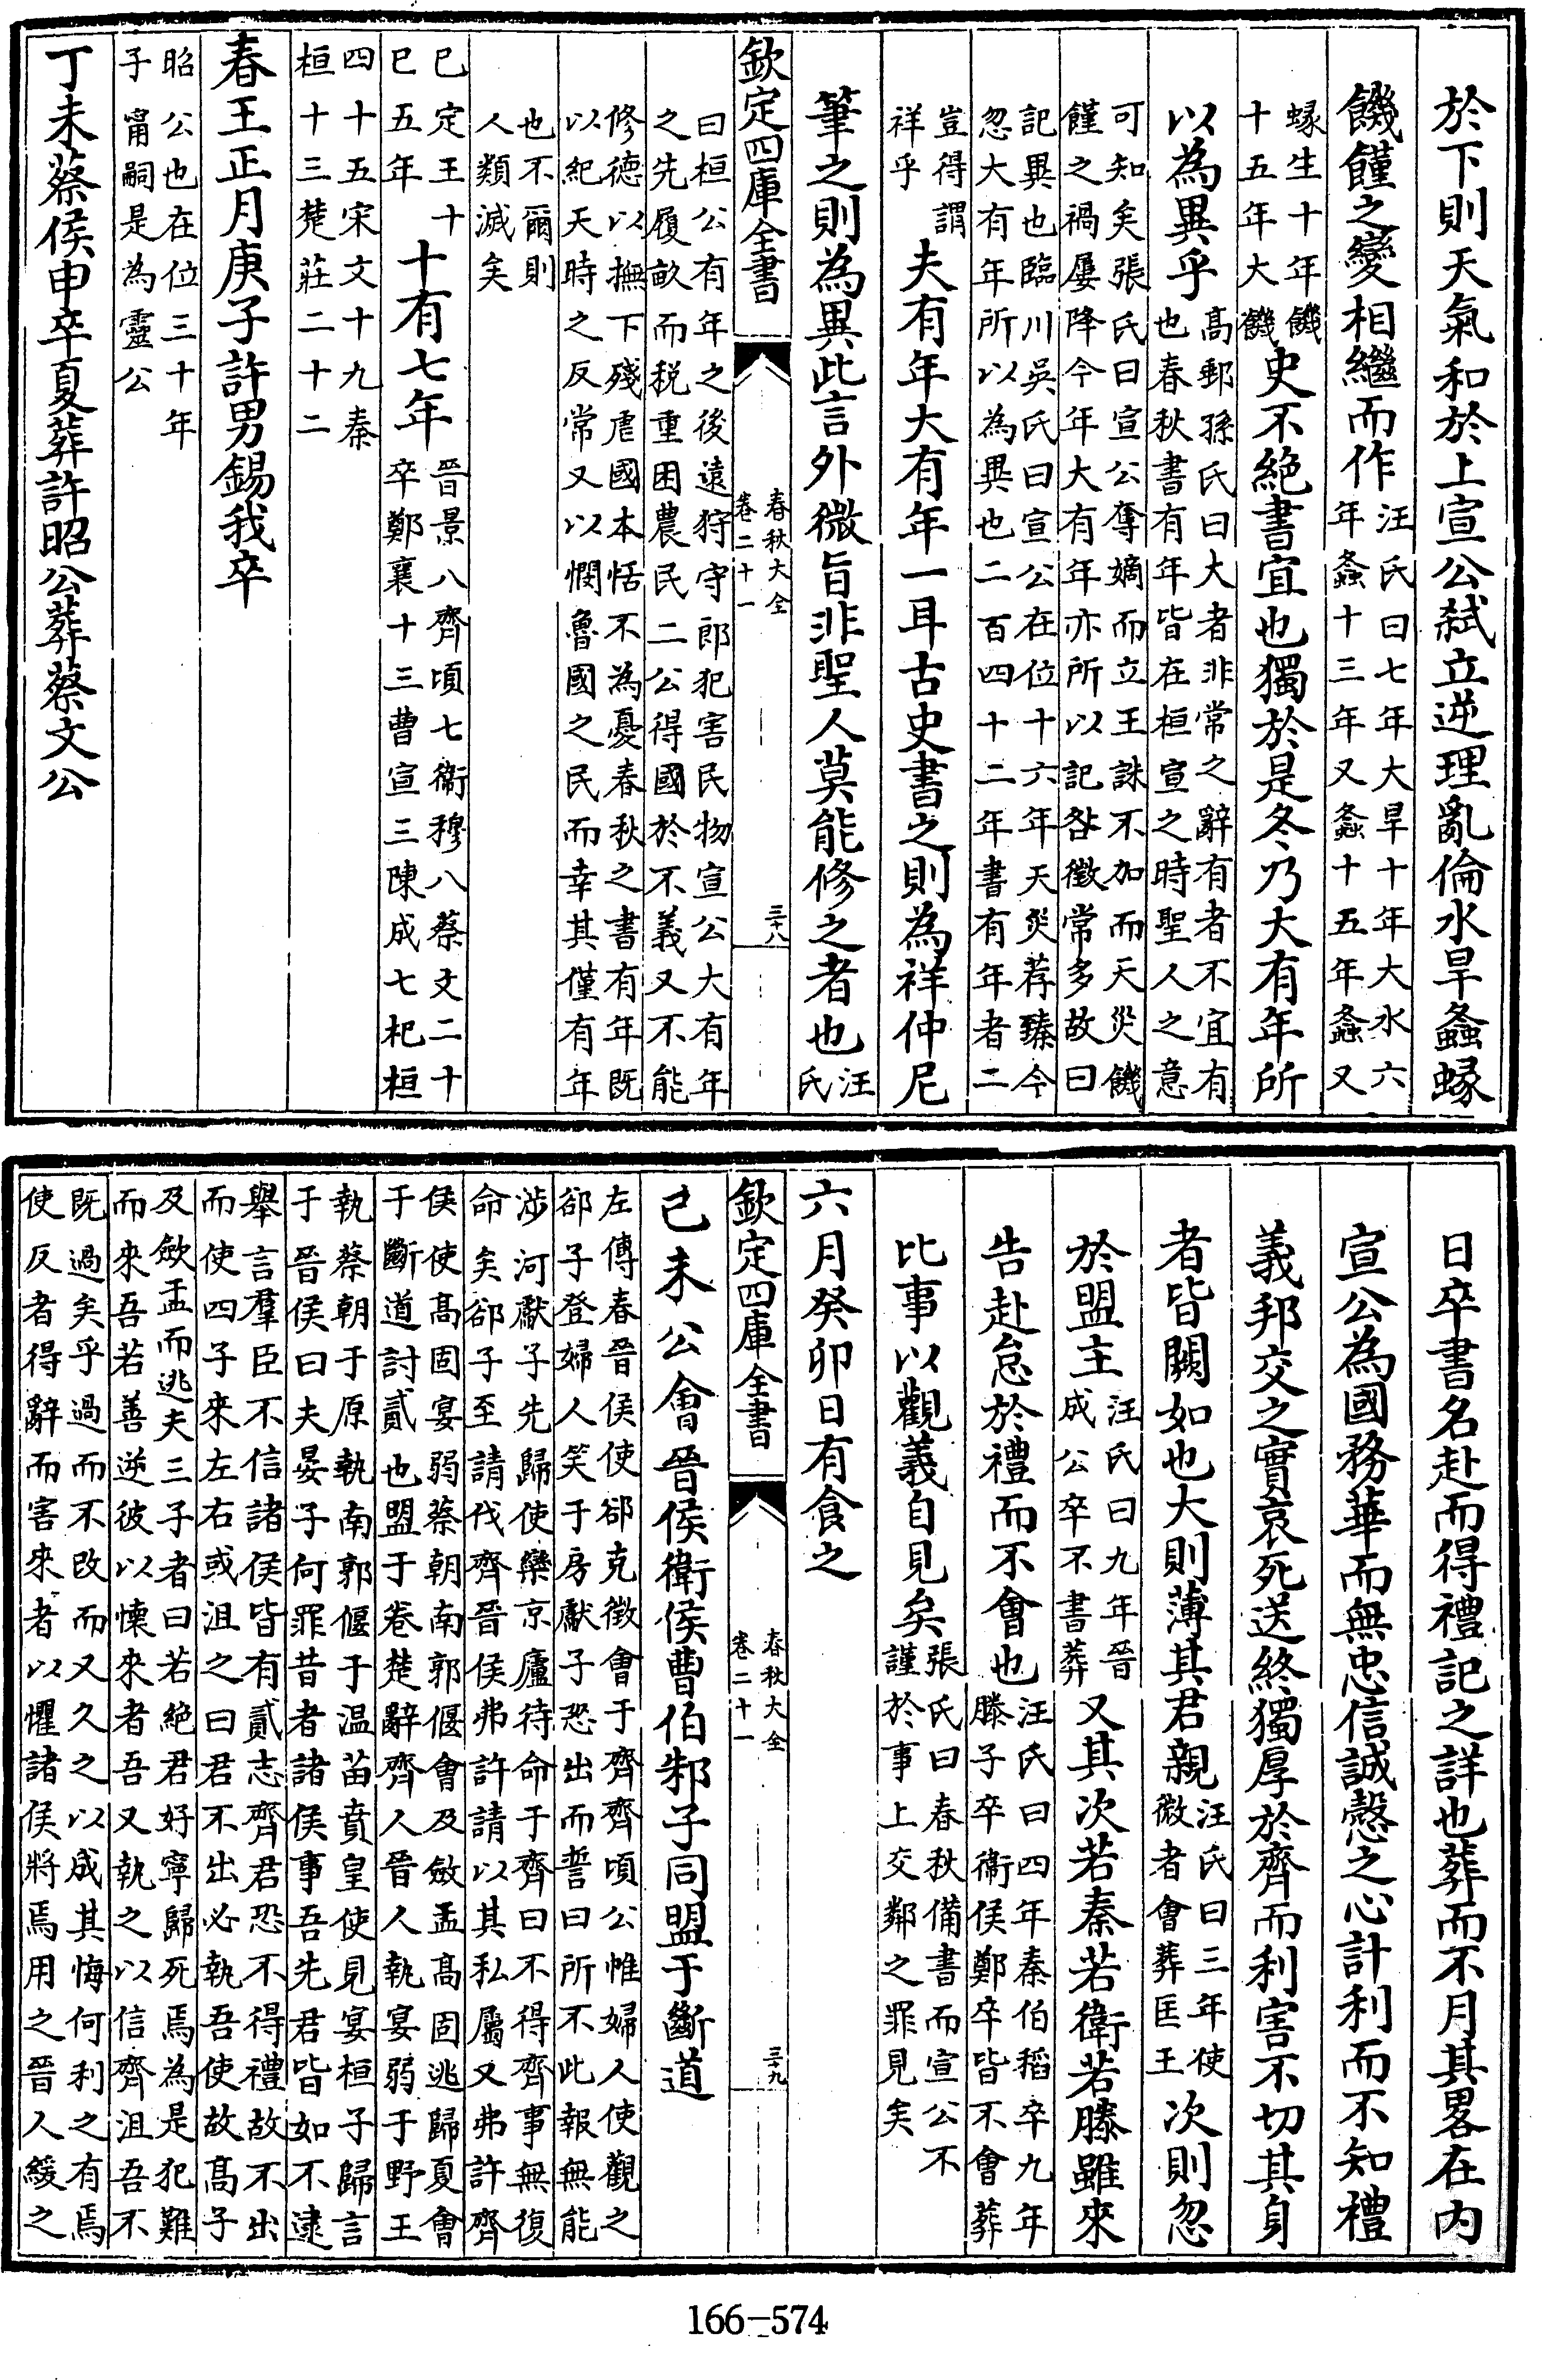 於下則天氣和於上宣公弑立逆理亂倫水旱螽蝝
饑饉之變相繼而作汪氏曰七年大旱十年大水六
年螽十三年又螽十五年螽又
蝝生十年饑
十五年大饑史不絶書宜也獨於是冬乃大有年所
以為異乎高郵孫氏曰大者非常之辭有者不宜有
也春秋書有年皆在桓宣之時聖人之意
可知矣張氏曰宣公奪嫡而立王誅不加而天災饑
饉之禍屢降今年大有年亦所以記咎徵常多故曰
記異也臨川吳氏曰宣公在位十六年天災荐臻今
忽大有年所以為異也二百四十二年書有年者二
豈得謂
祥乎夫有年大有年一耳古史書之則為祥仲尼
筆之則為異此言外微旨非聖人莫能修之者也汪
氏
欽定四庫全書
春秋大全
卷二十一
三十八
曰桓公有年之後遠狩守郎犯害民物宣公大有年
之先履畝而税重困農民二公得國於不義又不能
修德以撫下殘虐國本恬不為憂春秋之書有年既
以紀天時之反常又以憫魯國之民而幸其僅有年
也不爾則
人類滅矣
巳定王十
巳五年十有七年晉景八齊頃七衞穆八蔡文二十
卒鄭襄十三曹宣三陳成七杞桓
四十五宋文十九秦
桓十三楚莊二十二
春王正月庚子許男錫我卒
昭公也在位三十年
子甯嗣是為靈公
丁未蔡侯申卒夏葬許昭公葬蔡文公
日卒書名赴而得禮記之詳也葬而不月其畧在内
宣公為國務華而無忠信誠慤之心計利而不知禮
義邦交之實哀死送終獨厚於齊而利害不切其身
者皆闕如也大則薄其君親汪氏曰三年使
微者會葬匡王次則忽
於盟主汪氏曰九年晉
成公卒不書葬又其次若秦若衛若滕雖來
告赴怠於禮而不會也汪氏曰四年秦伯稻卒九年
滕子卒衞侯鄭卒皆不會葬
比事以觀義自見矣張氏曰春秋備書而宣公不
謹於事上交鄰之罪見矣
六月癸卯日有食之
欽定四庫全書
春秋大全
卷二十一
三十九
己未公會晉侯衛侯曹伯邾子同盟于斷道
左傳春晉侯使郤克徵會于齊齊頃公帷婦人使觀之
郤子登婦人笑于房獻子恐出而誓曰所不此報無能
渉河獻子先歸使欒京廬待命于齊曰不得齊事無復
命矣郤子至請伐齊晉侯弗許請以其私屬又弗許齊
侯使高固宴弱蔡朝南郭偃會及斂盂高固逃歸夏會
于斷道討貳也盟于卷楚辭齊人晉人執宴弱于野王
執蔡朝于原執南郭偃于温苗賁皇使見宴桓子歸言
于晉侯曰夫晏子何罪昔者諸侯事吾先君皆如不逮
舉言羣臣不信諸侯皆有貳志齊君恐不得禮故不出
而使四子來左右或沮之曰君不出必執吾使故高子
及歛盂而逃夫三子者曰若絶君好寧歸死焉為是犯難
而來吾若善逆彼以懐來者吾又執之以信齊沮吾不
既過矣乎過而不改而又久之以成其悔何利之有焉
使反者得辭而害來者以懼諸侯將焉用之晉人緩之
166-574